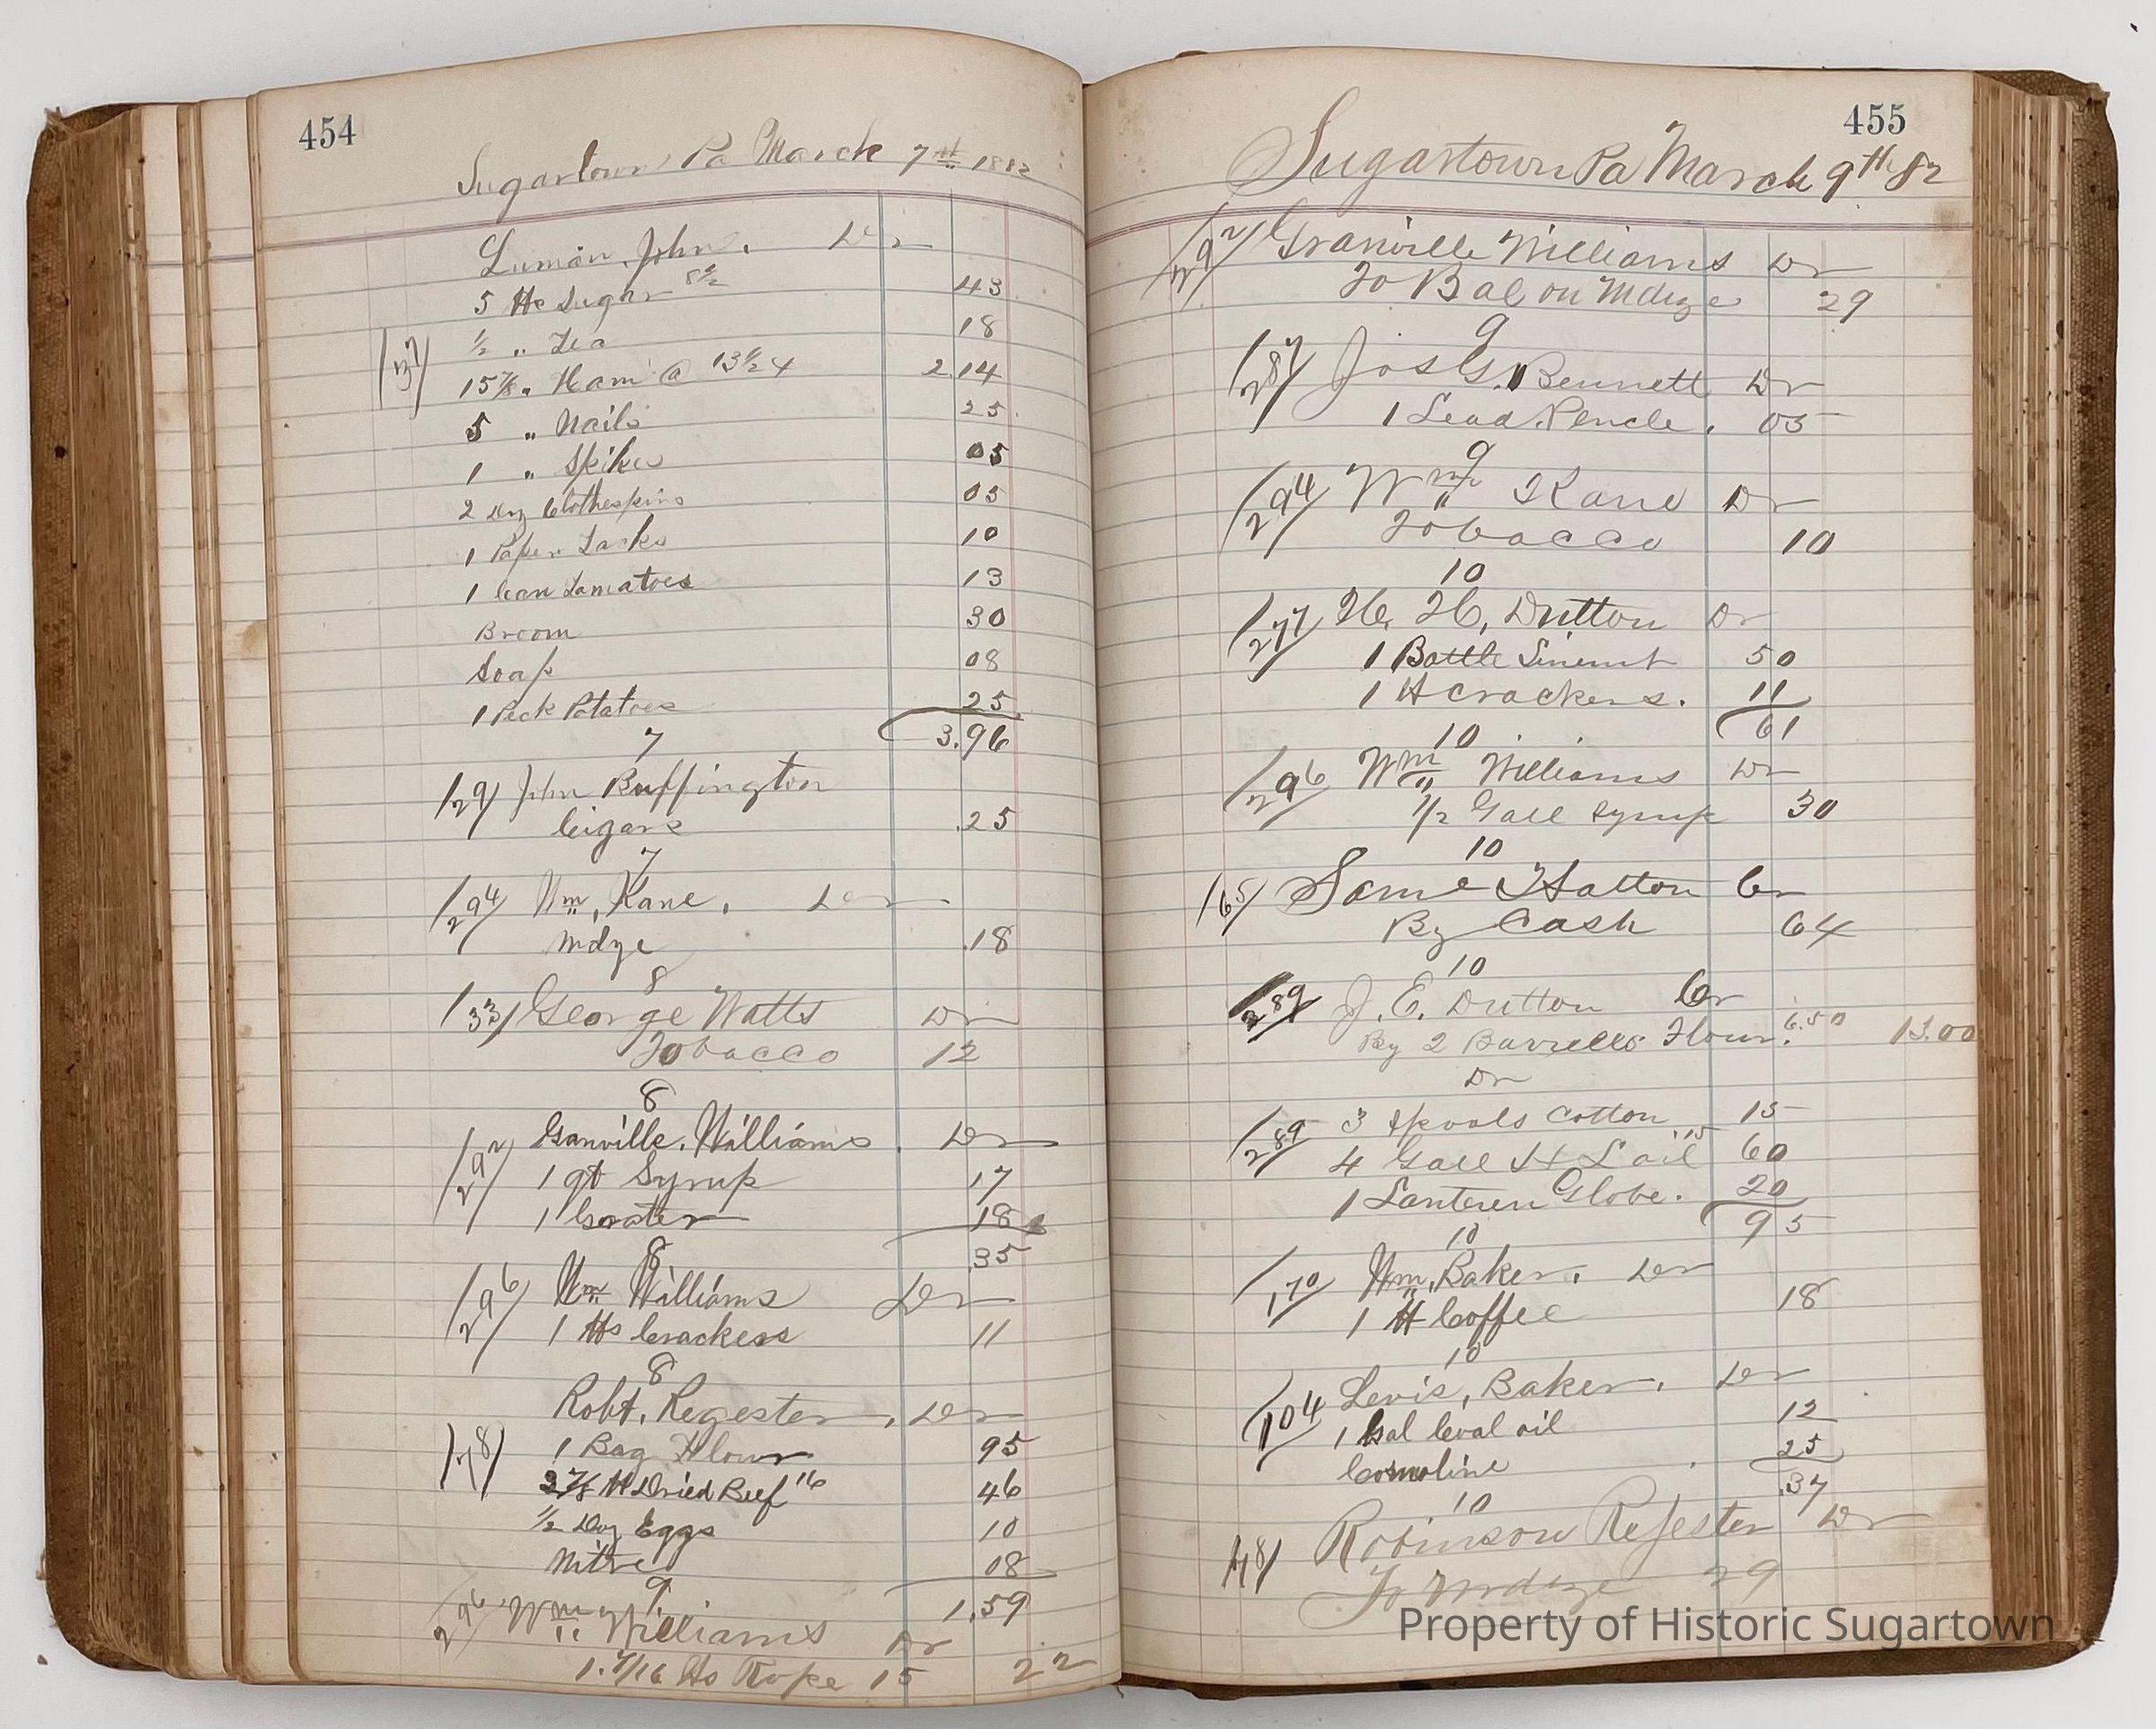 454
Sugartown Pa March 7th 1882
Luman, John. Dr
5 lbs Sugar 8½ 43
½ " Tea 18
15⅞ " Ham @ 13½ 2.14
5 " Nails 25
1 " Spikes 05
2 Doz Clothespins 05
1 Paper Tacks 10
1 Can Tamatoes 13
Broom 30
Soap 08
1 Peck Potatoes 25
3.96
7
/29/ John Buffington
Cigars .25
7
/294/ Wm, Kane, Dr
Mdze .18
8
/33/ George Watts Dr
Tobacco 12
8
/292/ Granville, Williams. Dr
1 qt Syrup 17
1 Grater 18
.35
8
/296/ Wm Williams Dr
1 lbs Crackers 11
8
Robt, Regester, Dr
/78/ 1 Bag Flour 95
2⅞ lb Dried Beef 16 46
½ Doz Eggs 10
Nitre 08
1.59
9
/296/ Wm Williams Dr
1.7/16 lbs Rope 15 22
455
Sugartown Pa March 9th 82
/292/ Granville Williams Dr
To Bal on Mdze 29
9
/287/ Jos G. Bennett Dr
1 Lead Pencle. 05
9
/294/ Wm Kane Dr
Tobacco 10
10
/277/ H. H, Dutton Dr
1 Bottle Liniment 50
1 lb Crackers. 11
61
10
/296 Wm Williams Dr
1/2 Gall Syrup 30
10
/65/ Saml Hatton Cr
By Cash 64
10
/289/ J. E. Dutton Cr
By 2 Barrells Flour. 6.50 13.00
Dr
/289/ 3 Spools Cotton 15
4 Gall H L oil 15 60
1 Lanteren Globe. 20
95
10
/170/ Wm, Baker. Dr
1 lb Coffee 18
10
/104 Levis, Baker. Dr
1 Gal Coal oil 12
Cosmoline 25
.37
10
/78/ Robinson Regester Dr
To Mdze 29
Property of Historic Sugartown